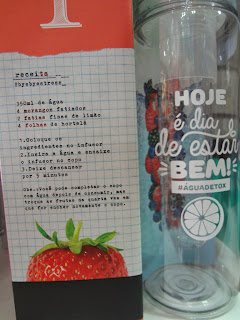 receita
#byebyestress_
350ml de Água
4 morangos fatiados
2 fatias finas de limão
4 folhas de hortelã
1.Coloque os
ingredientes no infusor
2.Insira a Água e encaixe
o infusor no copo
3.Deixe descansar
por 5 minutos
Obs.:Você pode completar o copo
com Água depois de consumir, mas
troque as frutas na quarta vez em
que for encher novamente o copo.
HOJE
é dia
de estar
BEM!
#ÁGUADETOX